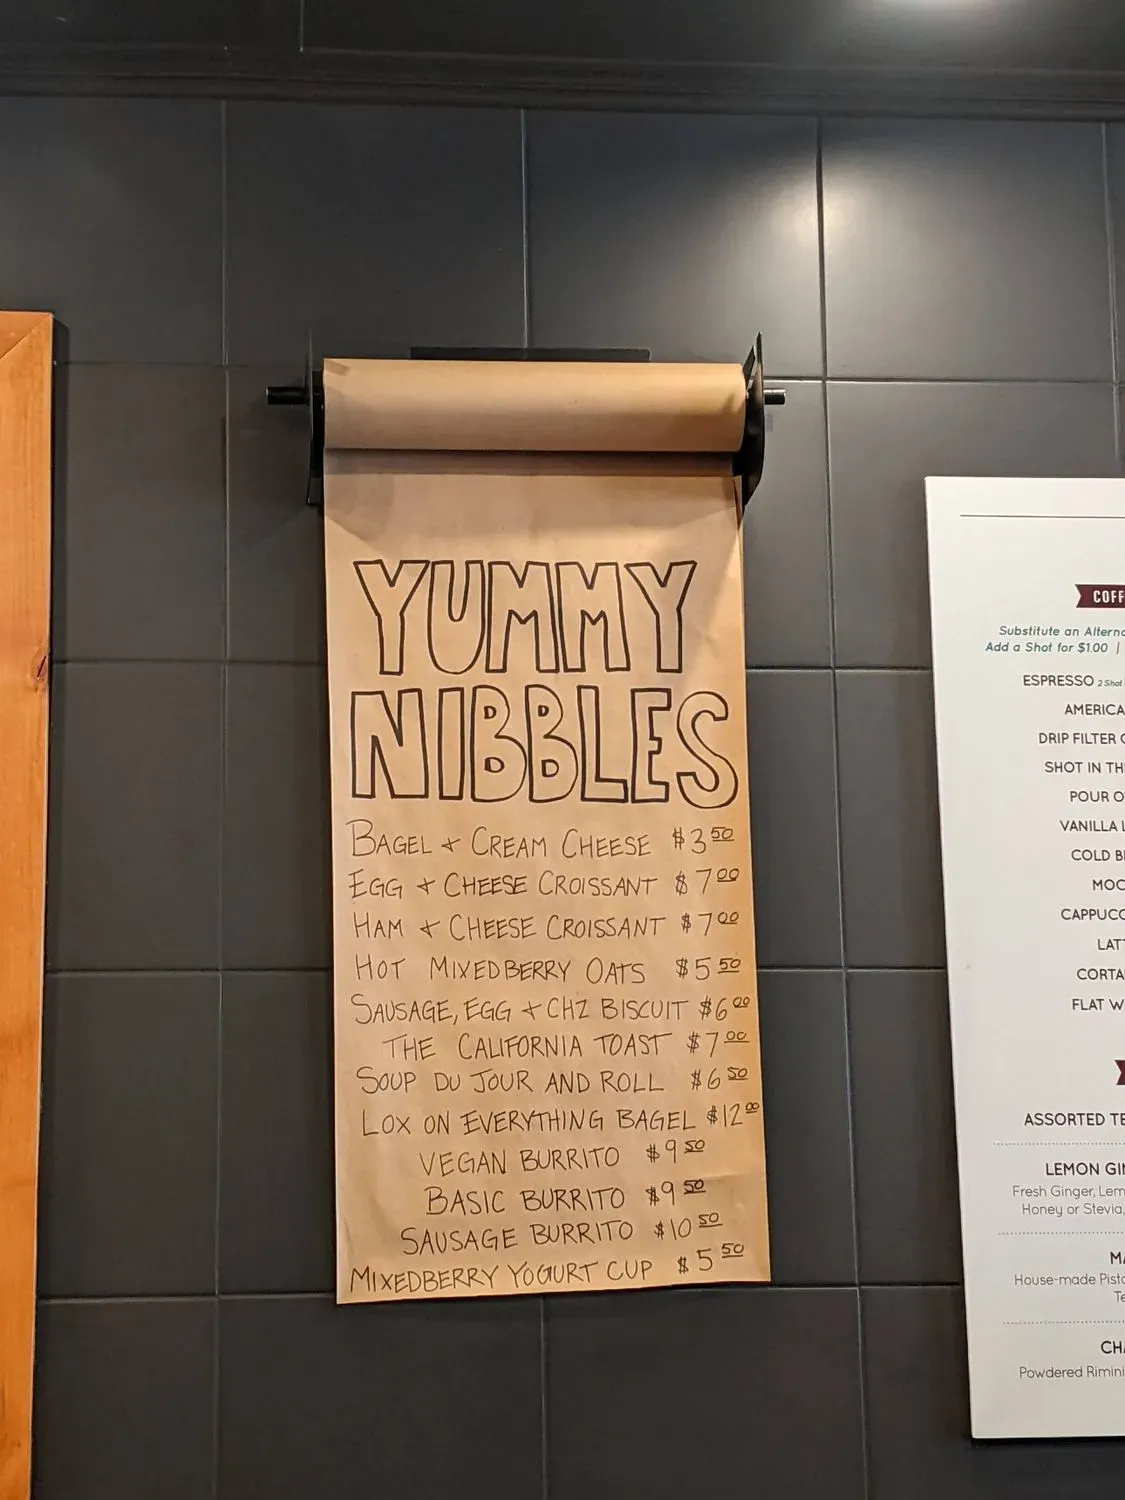 YUMMY
NIBBLES
BAGEL + CREAM CHEESE $3.50
EGG + CHEESE CROISSANT $7.00
HAM + CHEESE CROISSANT $7.00
HOT MIXEDBERRY OATS $5.50
SAUSAGE, EGG + CHZ BISCUIT $6.00
THE CALIFORNIA TOAST $7.00
SOUP DU JOUR AND ROLL $6.50
LOX ON EVERYTHING BAGEL $12.00
VEGAN BURRITO $9.50
BASIC BURRITO $9.50
SAUSAGE BURRITO $10.50
MIXEDBERRY YOGURT CUP $5.50
COFF
Substitute an Alterna
Add a Shot for $1.00 |
ESPRESSO 2 Shot
AMERICA
DRIP FILTER
SHOT IN TH
POUR O
VANILLA L
COLD B
MOC
CAPPUCC
LAT
CORTA
FLAT W
ASSORTED TE
LEMON GIN
Fresh Ginger, Lem
Honey or Stevia,
MA
House-made Pista
Te
CHA
Powdered Rimini